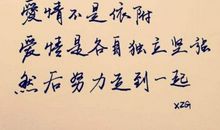 爱情不是依附
爱情是各自独立坚强
然后努力走到一起
XZG